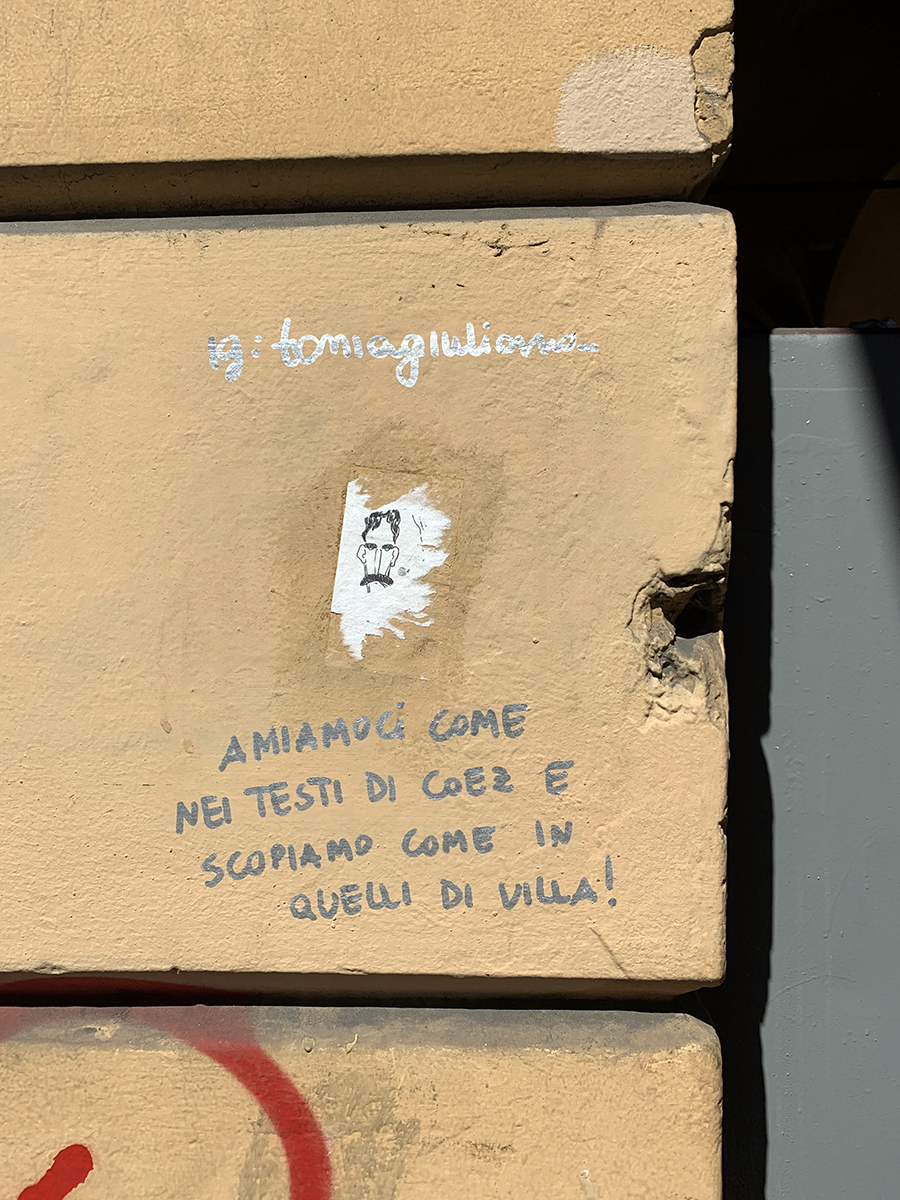 IG: toniagiuliano_
AMIAMOCi COME
NEI TESTI DI COEZ E
SCOPIAMO COME IN
QUELLI DI VILLA!